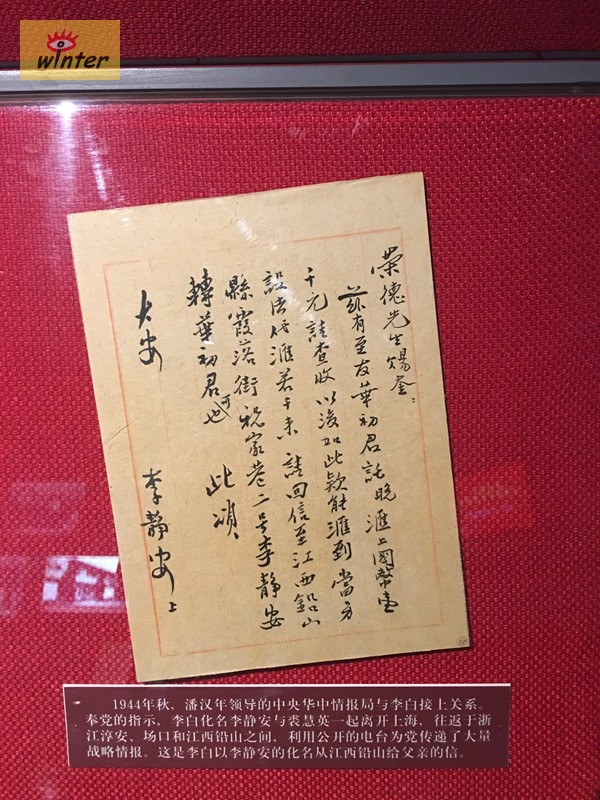 winter
榮德先生賜鉴：
兹有至友華初君託晚滙上國幣壹
千元請查收以後如此款能滙到當另
設法任滙若干来 請回信至江西鉛山
縣霞落街祝家巷二号李靜安
轉華初君可也 此頌
大安
李靜安上
1944年秋，潘汉年领导的中央华中情报局与李白接上关系。
奉党的指示，李白化名李静安与裘慧英一起离开上海，往返于浙
江淳安、场口和江西铅山之间，利用公开的电台为党传递了大量
战略情报。这是李白以李静安的化名从江西铅山给父亲的信。